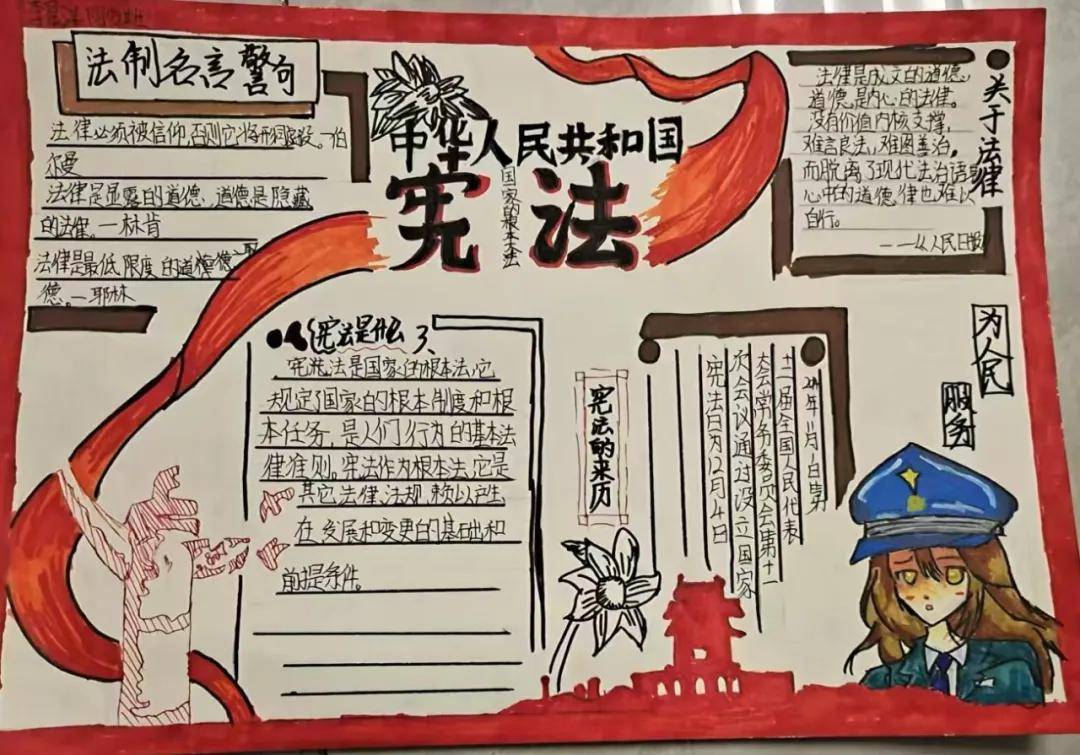 法制名言警句
法律必须被信仰,否则它将形同虚设。一伯
尔曼
法律是显露的道德,道德是隐藏
的法律。一林肯
法律是最低限度的道德
德。一耶林
中华人民共和国
宪法
国家的根本大法
关于法律
法律是成文的道德,
道德是内心的法律。
没有价值内核支撑,
难言良法,难图善治,
而脱离了现代法治语
心中的道德律也难以
自行。
——从人民日报
宪法是什么
宪法是国家的根本法,它
规定了国家的根本制度和根
本任务,是人们行为的基本法
律准则。宪法作为根本法,它是
其它法律、法规赖以产生
在发展和变更的基础和
前提条件。
宪法的来历
年11月1日第
十二届全国人民代表
大会常务委员会第十一
次会议通过设立国家
宪法日为12月4日
为人民
服务